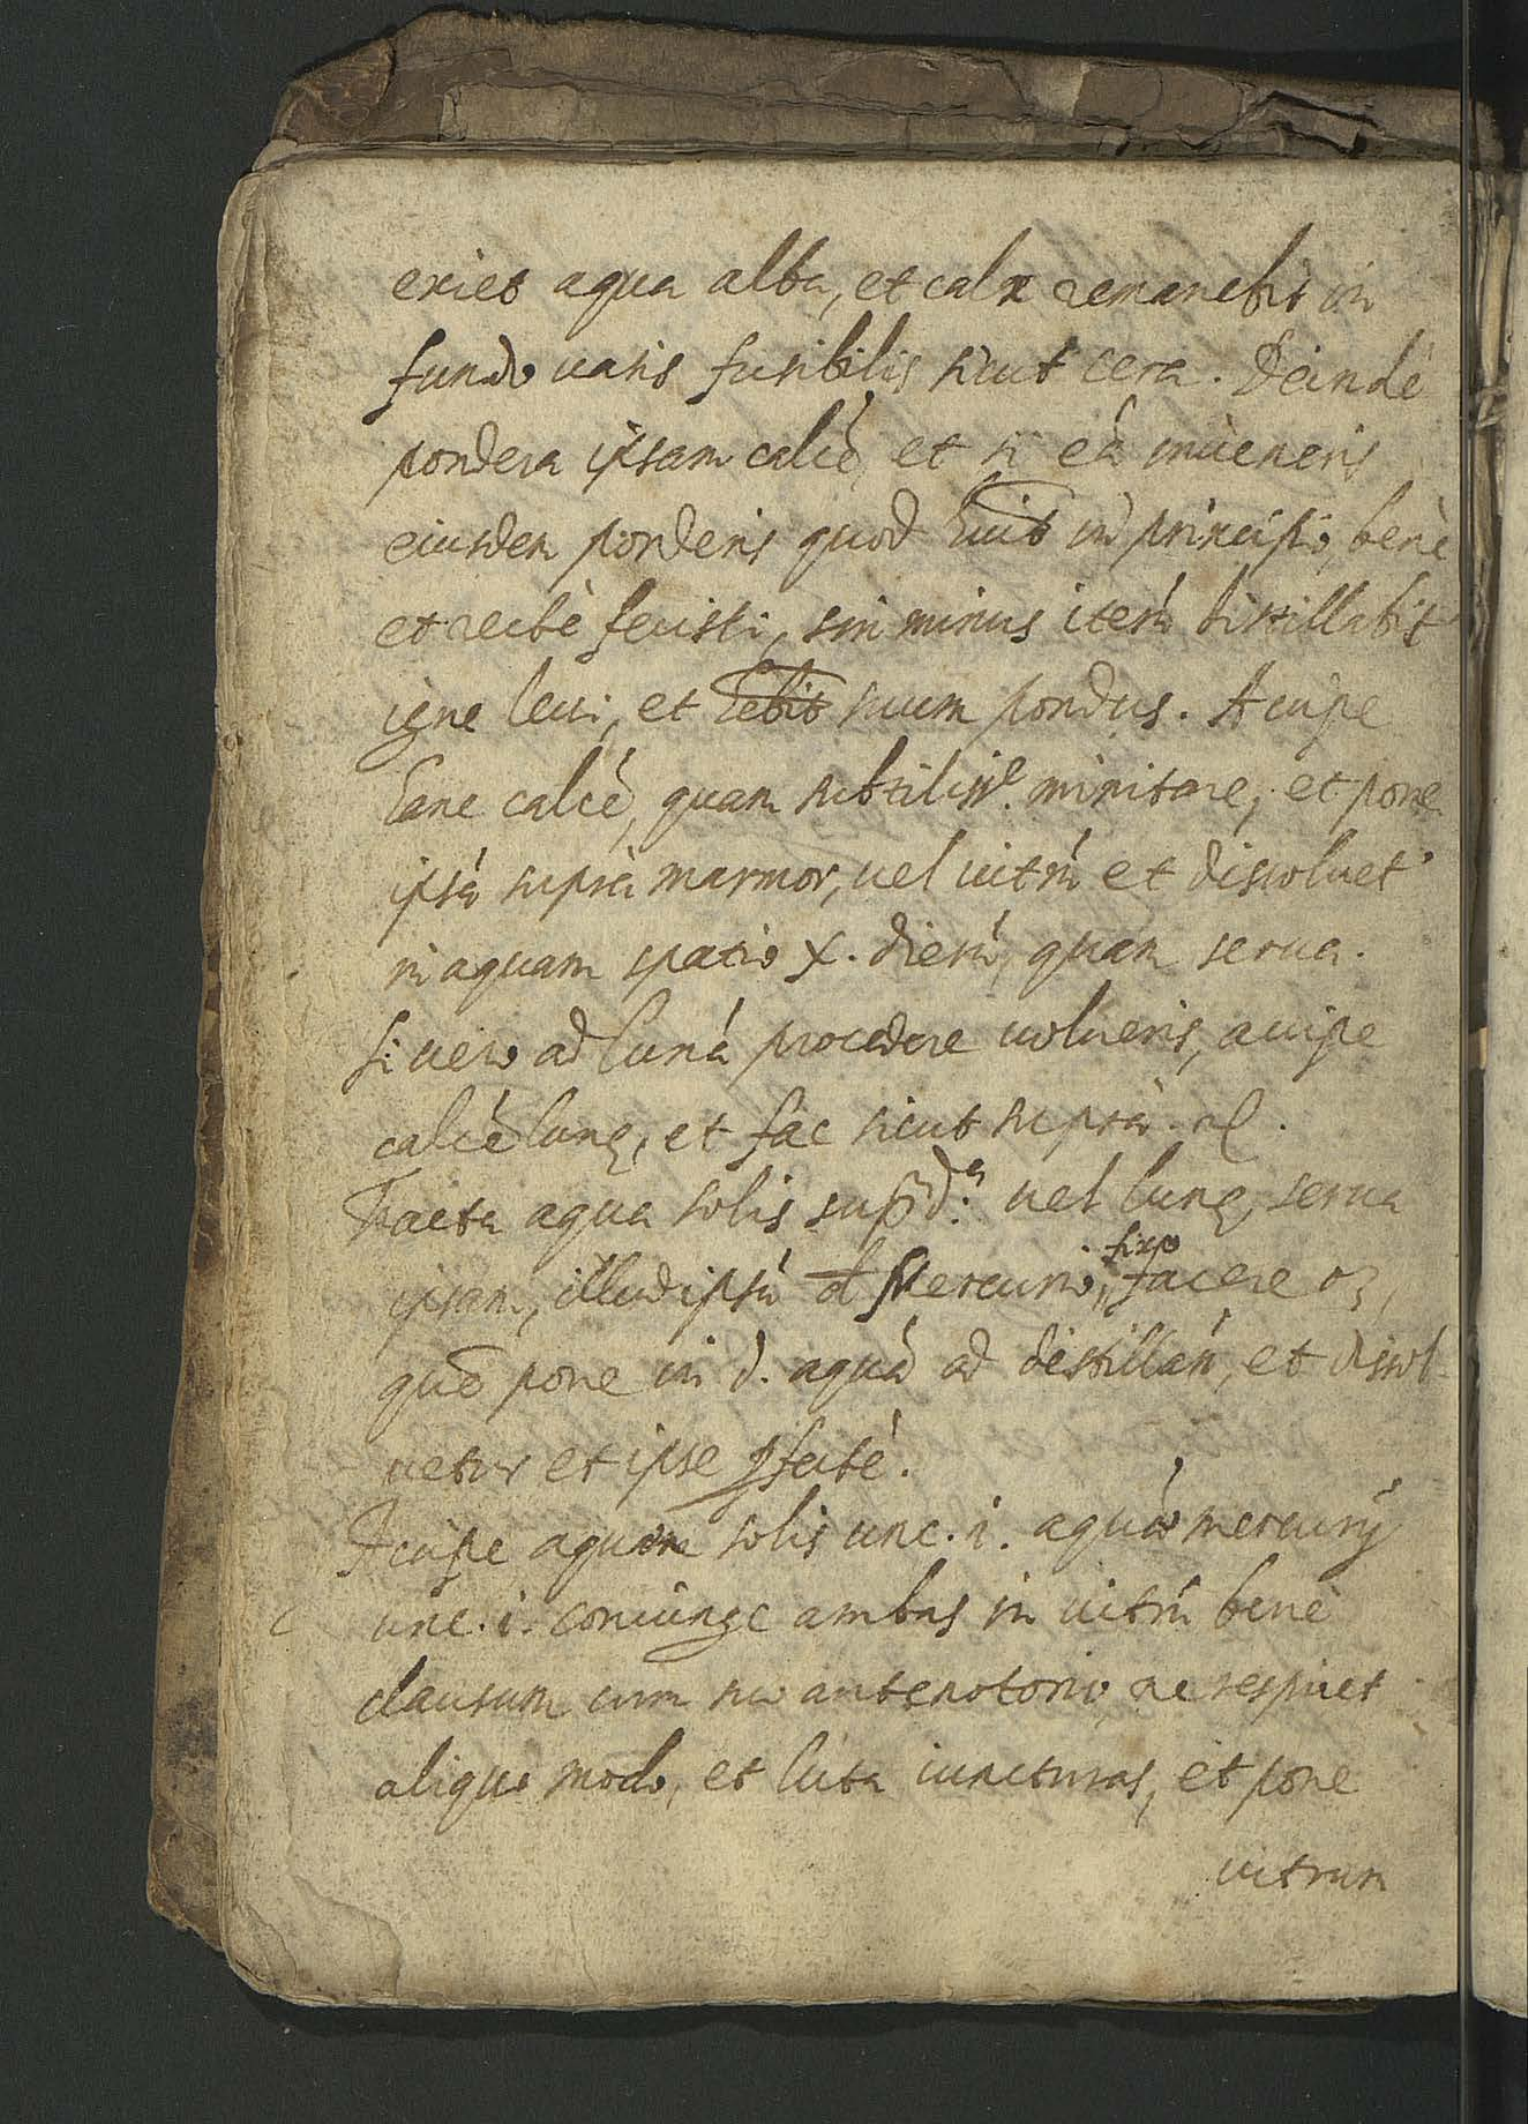 exiet aqua alba, et calx remanebit in
fundo uasis fusibilis sicut cera. Deindè
pondera ipsam calcē, et si eā inueneris
eiusdem ponderis quod huit in principio, benè
et rectè fecisti, sin minus iterū distillabit
igne leui, et hebit suum pondus. Accipe
hanc calcē, quam subtilissᵉ. minitare, et pone
ipsā suprà marmor, uel uitrū et dissoluet
in aquam spatio X. dierū, quam serua.
Si uero ad lunā procedere uolueris, accipe
calcē lunę, et fac sicut suprà.
Facta aqua solis supᵈ.ᵃ uel lunę, serua
ipsam, illud ipsū de Mercurio, fixo facere
quē pone in d. aquā ad distillan, et dissol
uetur et ipse pfectè.
Accipe aquam solis unc. i. aquā mercurij
unc. i. coniunge ambas in uitrū benè
clausum cum suo antenotorio, ne respiret
aliquo modo, et luta iuncturas, et pone
uitrum